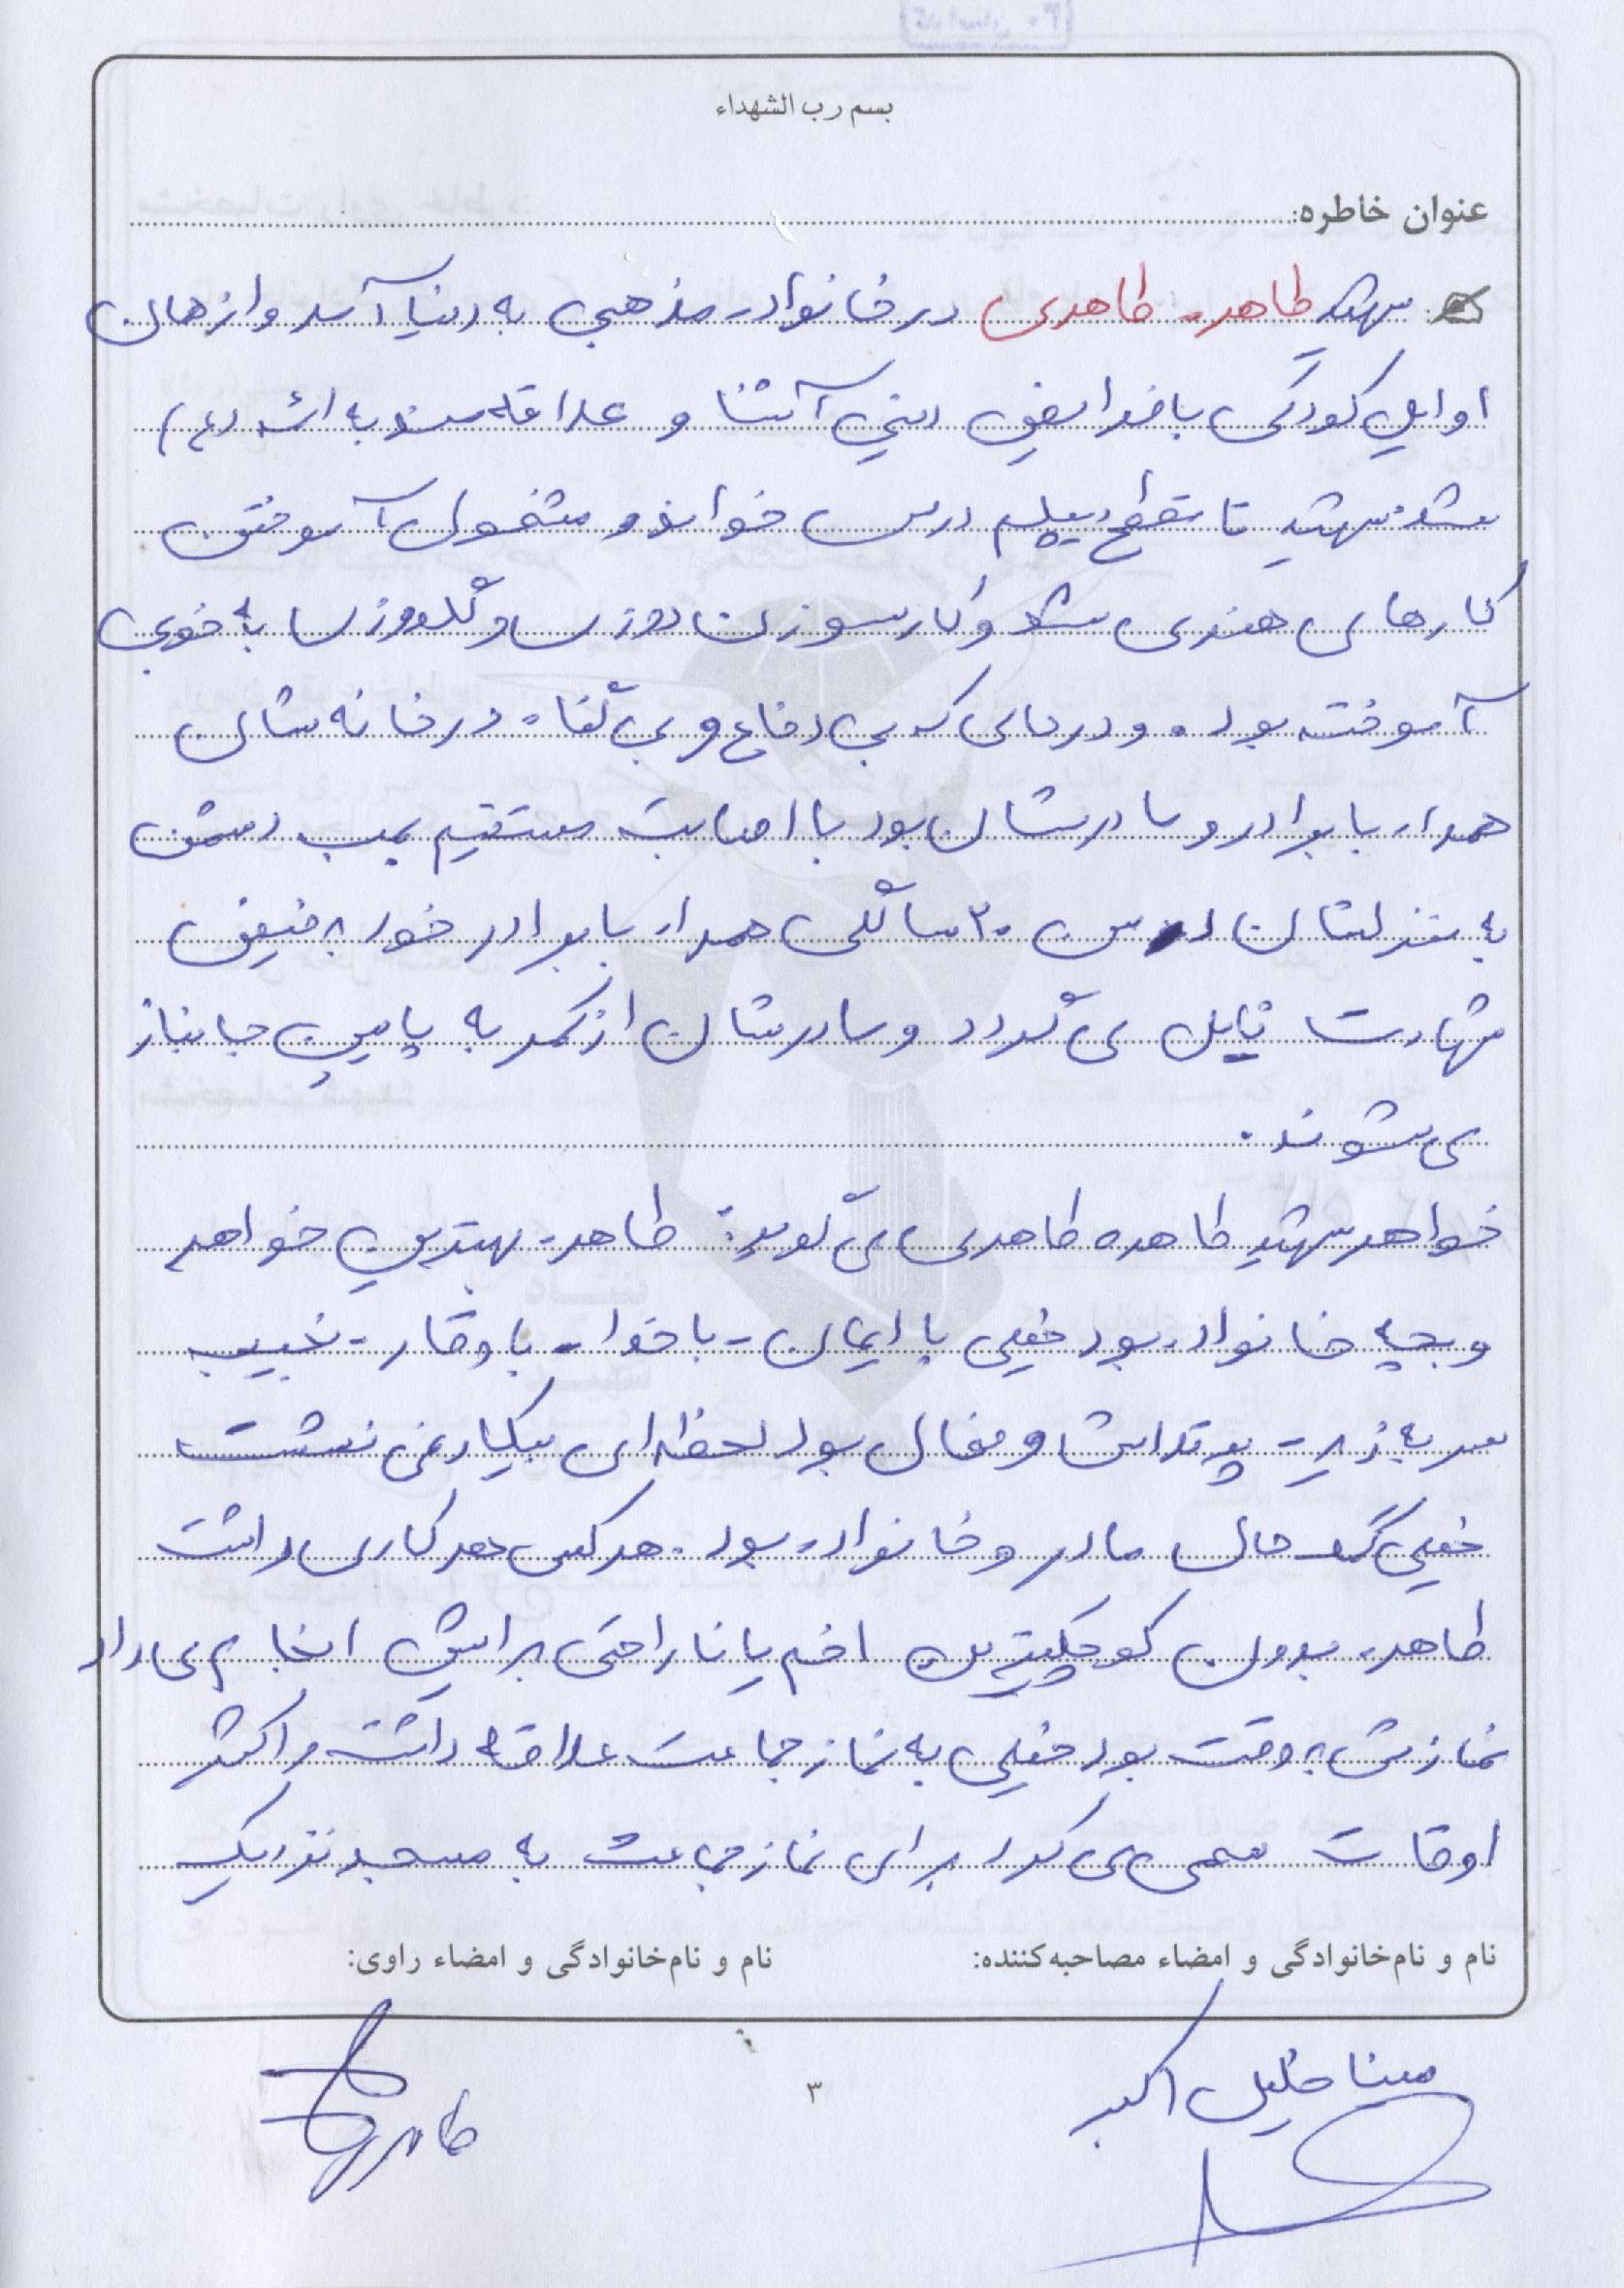 بسم رب الشهداء
عنوان خاطره:
شهید طاهره طاهری در خانواده مذهبی به دنیا آمد و از همان
اوایل کودکی با فرایض دینی آشنا و علاقه مند به ائمه (ع)
شد. شهید تا مقطع دیپلم درس خواند و مشغول آموختن
کارهای هنری شد و کار سوزن دوزی و گلدوزی را به خوبی
آموخته بود. و در حالی که بی دفاع و بی گناه در خانه شان
همراه با برادر و مادرشان بود با اصابت مستقیم بمب دشمن
به منزلشان در سن ۲۰ سالگی همراه با برادر خود به فیض
شهادت نایل می گردد و مادرشان از کمر به پایین جانباز
می شوند.
خواهر شهید طاهره طاهری می گوید: طاهره بهترین خواهر
و بچه خانواده بود خیلی با ایمان - با خدا - با وقار - نجیب
سر به زیر - پرتلاش و فعال بود لحظه ای بیکار نمی نشست
خیلی کمک حال مادر و خانواده بود. هر کسی هر کاری داشت
طاهره بدون کوچکترین اخم یا ناراحتی برایش انجام می داد
نمازش به وقت بود خیلی به نماز جماعت علاقه داشت و اکثر
اوقات سعی می کرد برای نماز جماعت به مسجد نزدیک
نام و نام‌خانوادگی و امضاء مصاحبه‌کننده: نام و نام‌خانوادگی و امضاء راوی:
مینا خلیل اکبر
طاهری
۳